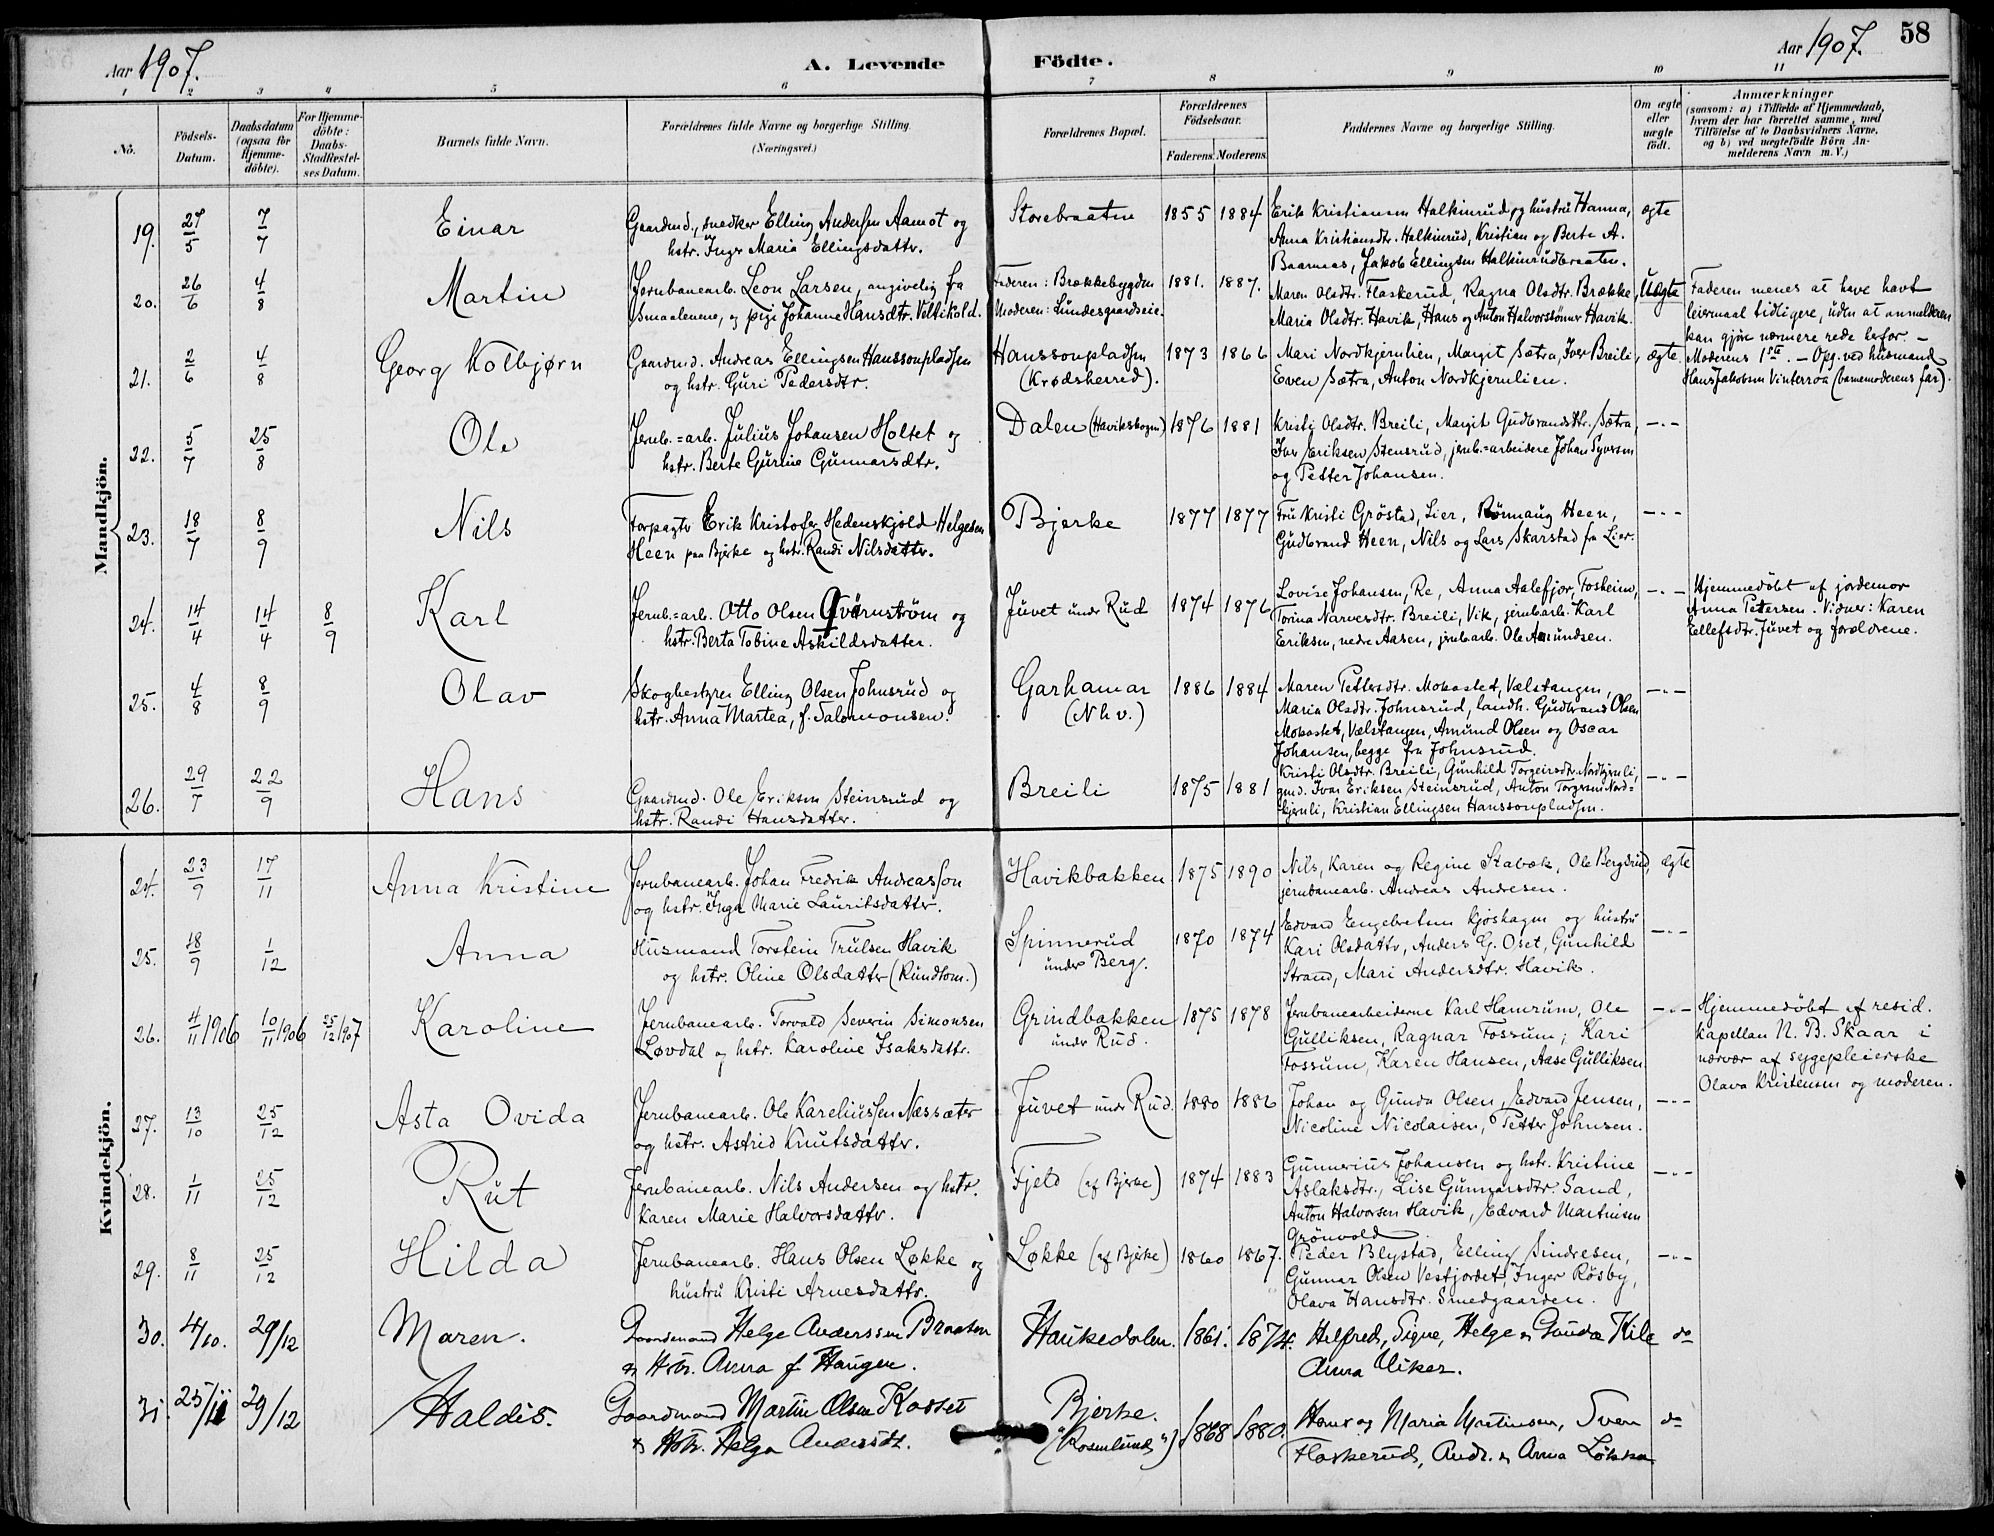 Aar 1907.
A. Levende Födte.
Aar 1907.
58
1 2 3 4 5 6 7 8 9 10 11
No.
Födsels-Datum.
Daabsdatum (ogsaa for Hjemme-döbte).
For Hjemme-döbte: Daabs-Stadfæstel-ses Datum.
Barnets fulde Navn.
Forældrenes fulde Navne og borgerlige Stilling (Næringsvei.)
Forældrenes Bopæl.
Forældrenes Födselsaar.
Faderens. Moderens.
Faddernes Navne og borgerlige Stilling.
Om ægte eller uægte födt.
Anmærkninger
(saasom: a) i Tilfælde af Hjemmedaab, hvem der har forrettet samme, med Tilföielse af to Daabsvidners Navne, og b) ved uægtefödte Börn An-melderens Navn m. V.)
Mandkjön.
19. 27/5 7/7 Einar
Gaardmd., snedker Elling Andersen Aamot og
hstr. Inger Maria Ellingsdattr.
Storebraaten 1855 1884
Erik Kristiansen Halkinrud og hustru Hanna,
Anna Kristiansdtr. Halkinrud, Kristian og Berte A.
Baarnaas, Jakob Ellingsen Halkinrudbraaten.
ægte
20. 26/6 4/8 Martin
Jernbanearb. Leon Larsen, angivelig fra
Smaalenene, og pige Johanne Hansdtr. Veltikold.
Faderen: Brækkebygden
Moderen: Lundesgaardseie.
1881. 1887.
Maren Olsdtr. Flaskerud, Ragna Olsdtr. Brække,
Maria Olsdtr. Havik, Hans og Anton Halvorsönner Havik.
Uægte
Faderen menes at have havt
leiermaal tidligere, uden at anmelderen
kan gjøre nærmere rede herfor. -
Moderens 1ste. - Opg. ved husmand
Hans Jakobsen Vinterroa (barnemoderens far).
21. 2/6 4/8 Georg Kolbjørn
Gaardmd. Andreas Ellingsen Hanssonpladsen
og hstr. Guri Pedersdtr.
Hanssonpladsen
(Krødsherred).
1873 1866
Mari Nordkjernlien, Margit Sætra, Iver Breili,
Even Sætra, Anton Nordkjernlien.
ægte
22. 5/7 25/8 Ole
Jernb.=arb. Julius Johansen Holtet og
hstr. Berte Gurine Gunnarsdtr.
Dalen (Haviksbogen) 1876 1881
Kristi Olsdtr. Breili, Margit Gudbrandsdtr. Sætra,
Iver Eriksen Stensrud, jernb.=arbeidere Johan Syversen
og Petter Johansen.
-"-
23. 18/7 8/9 Nils
Forpagter Erik Kristofer Hedenskjold Helgesen
Heen paa Bjerke og hstr. Randi Nilsdattr.
Bjerke 1877 1877
Fru Kristi Gröstad, Lier, Rönnaug Heen,
Gudbrand Heen, Nils og Lars Skarstad fra Lier.
-"-
24. 14/4 14/4 8/9 Karl
Jernb.=arb. Otto Olsen Qvarnström og
hstr. Berta Tobine Askildsdatter.
Juvet under Rud 1874 1876
Lovise Johansen, Re, Anna Aslefjor, Fosheim,
Torina Narvesdtr. Breili, Vik, jernbarb. Karl
Eriksen, nedre Aasen, jernbarb. Ole Amundsen.
-"-
Hjemmedöbt af jordemor
Anna Petersen. Vidner: Karen
Ellefsdtr. Juvet og forældrene.
25. 4/8 8/9 Olav
Skogbestyrer Elling Olsen Johnsrud og
hstr. Anna Martea, f. Salomonsen.
Garhamar
(Nhv.)
1886 1884
Maren Pettersdtr. Mobastet, Vælstangen,
Maria Olsdtr. Johnsrud, landh. Gudbrand Olsen
Mobastet, Vælstangen, Amund Olsen og Oscar
Johansen, begge fra Johnsrud.
-"-
26. 29/7 22/9 Hans
Gaardmd. Ole Eriksen Steinsrud og
hstr. Randi Hansdatter.
Breili 1875 1881
Kristi Olsdtr. Breili, Gunhild Torgeirsdtr. Nordkjernli,
gmd. Iver Eriksen Steinsrud, Anton Torgersen Nord=
kjernli, Kristian Ellingsen Hanssonpladsen.
-"-
Kvindekjön.
24. 23/9 17/11 Anna Kristine
Jernbanearb. Johan Fredrik Andreasson
og hstr. Inga Marie Lauritsdatter.
Havikbakken 1875 1890
Nils, Karen og Regine Stabæk, Ole Bergsrud,
jernbanearb. Andreas Andresen.
ægte
25. 18/9 1/12 Anna
Husmand Torstein Trulsen Havik
og hstr. Oline Olsdatter (Rundtom.)
Spinnerud
under Berg.
1870 1874
Edvard Engebretsen Kjøshagen og hustru
Kari Olsdattr, Anders G. Oset, Gunhild
Strand, Mari Andersdtr. Havik.
-"-
26. 4/11 1906 10/11 1906 25/12 1907 Karoline
Jernbanearb. Torvald Severin Simonsen
Løvdal og hstr. Karoline Isaksdattr.
Grindbakken
under Rud.
1875 1878
Jernbanearbeiderne Karl Hamrum, Ole
Gulliksen, Ragnar Fossum; Kari
Fossum, Karen Hansen, Aase Gulliksen
-"-
Hjemmedöbt af resid.
kapellan N. B. Skaar i
nærvær af sygepleierske
Olava Kristensen og moderen.
27. 13/10 25/12 Asta Ovida
Jernbanearb. Ole Kareliussen Næssæter
og hstr. Astrid Knutsdattr.
Juvet under Rud. 1880 1886
Johan og Gunda Olsen, Edvard Jensen,
Nicoline Nicolaisen, Petter Johnsen.
-"-
28. 1/11 25/12 Rut
Jernbanearb. Nils Andersen og hstr.
Karen Marie Halvorsdattr.
Fjeld (af Bjerke) 1874 1883
Gunnerius Johansen og hstr. Kristine
Aslaksdtr., Lise Gunnarsdtr. Sand,
Anton Halvorsen Havik, Edvard Martinsen
Grönvold
-"-
29. 8/11 25/12 Hilda
Jernbanearb. Hans Olsen Løkke og
hustru Kristi Arnesdattr.
Løkke (af Bjerke) 1860 1867.
Peder Blystad, Elling Sindresen,
Gunnar Olsen Vestjordet, Inger Rösby,
Olava Hansdtr. Smedgaarden.
-"-
30. 4/10. 29/12 Maren.
Gaardmand Helge Anderssen Braaten
og Hstr. Anna f. Haugen.
Haukedalen. 1861. 1874.
Helfred, Signe, Helge og Gunda Kile
Anna Viker.
do
31. 25/11 29/12 Haldis.
Gaardmand Martin Olsen Kastet
og Hstr. Helga Andersdt.
Bjerke.
("Rosenlund")
1868 1880.
Hans og Maria Martinsen, Sven
Flaskerud, Andr. og Anna Løkka
do